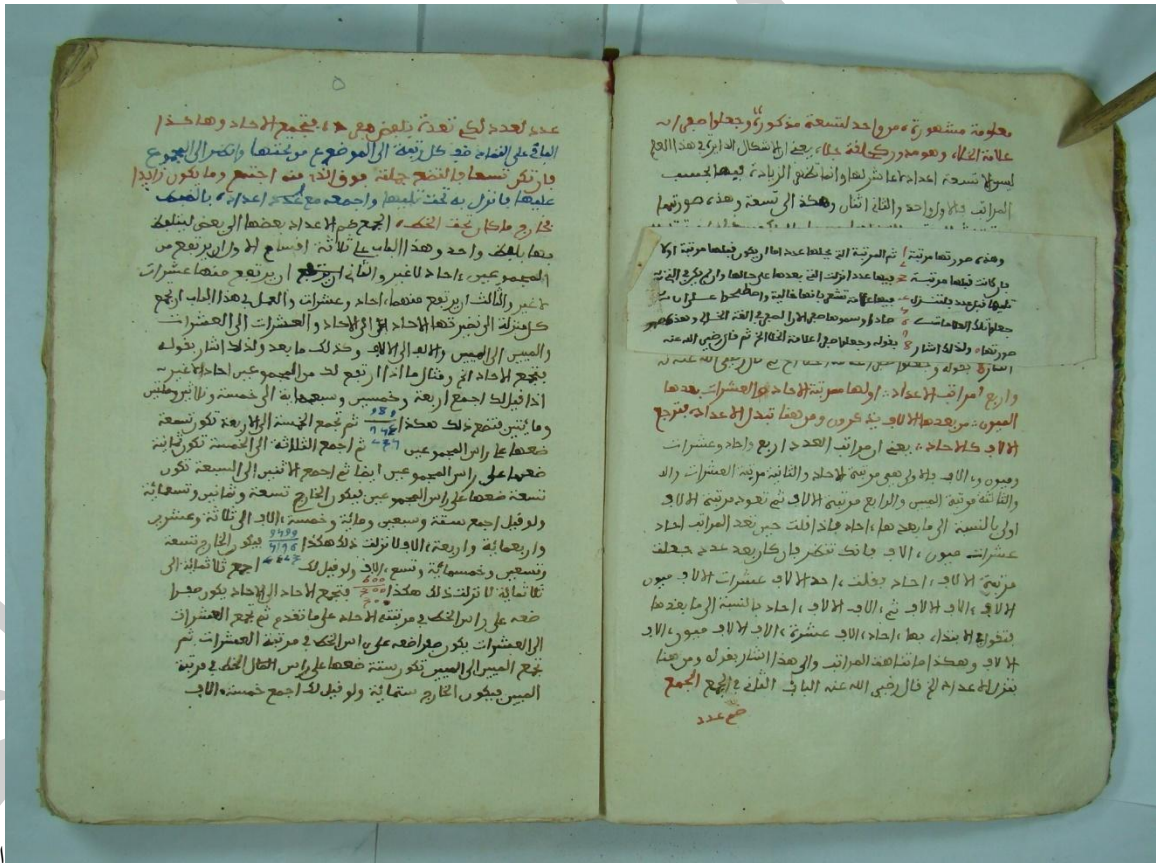 معلومة مشهورة من واحد لتسعة مذكورة وجعلوا صفرا
علامة الخلاء وهو مدور كحلقة جلاء يعني ان الاشكال الدايرة في هذا العلم
ليس الا تسعة اعداد لا عاشر لها وانما تكون الزيادة فيها بحسب
المراتب فالاول واحد والثاني اثنان وهكذا الى تسعة وهذه صورتها
وهذه صورتها مرتبة ثم المرتبة التي تحلها عددا اما ان يكون قبلها مرتبة اولا
فان كانت قبلها مرتبة فيها عدد انزلت التي بعدها على حالها وان لم يكن في التي
صورتها ولذلك اشار بقوله وجعلوا صفرا علامة الخلا الخ ثم قال رضي الله عنه
واربع مراتب الاعداد اولها مرتبة الاحاد والعشرات بعدها
الميون من بعدها الالاف يذكرون ومن هنا تبدل الاعداد فترجع
الالاف كالاحاد يعني ان مراتب العدد اربع واحاد وعشرات
وميون والالاف فالاولى هي مرتبة الاحاد والثانية مرتبة العشرات
والثالثة مرتبة الميين والرابع مرتبة الالاف ثم تعود مرتبة الالاف
اولى بالنسبة الى ما بعدها احاد فاذا قلت حين تعد المراتب احاد
عشرات ميون الاف فانك تنظر فان كان بعد عدد جعلت
مرتبة الالاف احاد فقلت احد الالاف عشرات الالاف ميون
الالاف الاف الالاف ثم الاف الالاف احاد بالنسبة الى ما بعدها
فتقول في الابتداء بها احاد الاف عشرة الاف الالاف ميون الاف
الالاف وهكذا ما تناهت المراتب والى هذا اشار بقوله ومن هنا
تغزل الاعداد الخ قال رضي الله عنه الباب الثاني في الجمع الجمع
ضم عدد
٥
عدد لعدد لكي تعده بلفظ فتجمع الاحاد وهاكذا
الباقي على التضاد ضف كل رتبة الى الموضوع من تحتها وانظر الى المجموع
فان تكن تسعا فالتضع جملة فوق الذي منه اجتمع وما يكون زايدا
عليها فانزل به تحت تليها واجمعه مع عدد
بخارج ما كان تحت الخط الجمع ضم الاعداد بعضها الى بعض ليتلفظ
بها بلفظ واحد وهذا الباب على ثلاثة اقسام الاول ان يرتفع من
المجموعين احاد لا غير والثاني ان يرتفع منها عشرات
لا غير والثالث ان يرتفع منهما احاد وعشرات والعمل في هذا الباب ان تجمع
كل منزلة الى نضيرتها الاحاد الى الاحاد والعشرات الى العشرات
والميين الى الميين والالاف الى الالاف وكذلك ما بعد ولذلك اشار بقوله
فتجمع الاحاد الخ ومثال ما اذا ارتفع لك من المجموعين احاد لا غير
اذا قيل لك اجمع اربعة وخمسين وسبعماية الى خمسة وثلاثين
ومايتين فتضع ذلك هكذا ثم تجمع الخمسة الى الاربعة تكون تسعة
ضعها على راس المجموعين ثم اجمع الثلاثة الى الخمسة تكون ثمانية
ضعها على راس المجموعين ايضا ثم اجمع الاثنين الى السبعة تكون
تسعة ضعها على راس المجموعين فيكون الخارج تسعة وثمانين وتسعماية
ولو قيل اجمع ستة وتسعين وماية وخمسة الاف الى ثلاثة وعشرين
واربعماية واربعة الاف لانزلت ذلك هكذا فيكون الخارج تسعة
وخمسماية وتسع الاف ولو قيل لك اجمع ثلاثماية الى
ثلاثماية لانزلت ذلك هكذا فتجمع الاحاد الى الاحاد يكون صفرا
ضعه على راس الخط في مرتبة الاحاد على ما تقدم ثم تجمع العشرات
الى العشرات يكون صفرا ضعه على راس الخط في مرتبة العشرات ثم
تجمع الميين الى الميين تكون ستة ضعها على راس الخط في مرتبة
الميين فيكون الخارج ستماية ولو قيل لك اجمع خمسة الاف